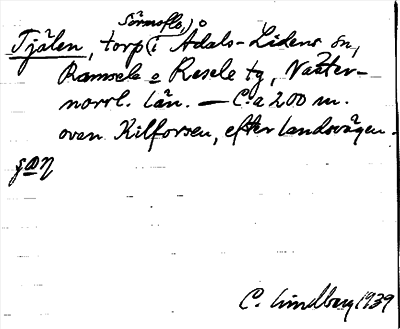 Sörmoflo)
Tjälen, torp (i Ådals-Lidens sn,
Ramsele o Resele tg, Väster-
norrl. län. — C:a 200 m.
ovan Kilforsen, efter landsvägen.
C. Lindberg 1939